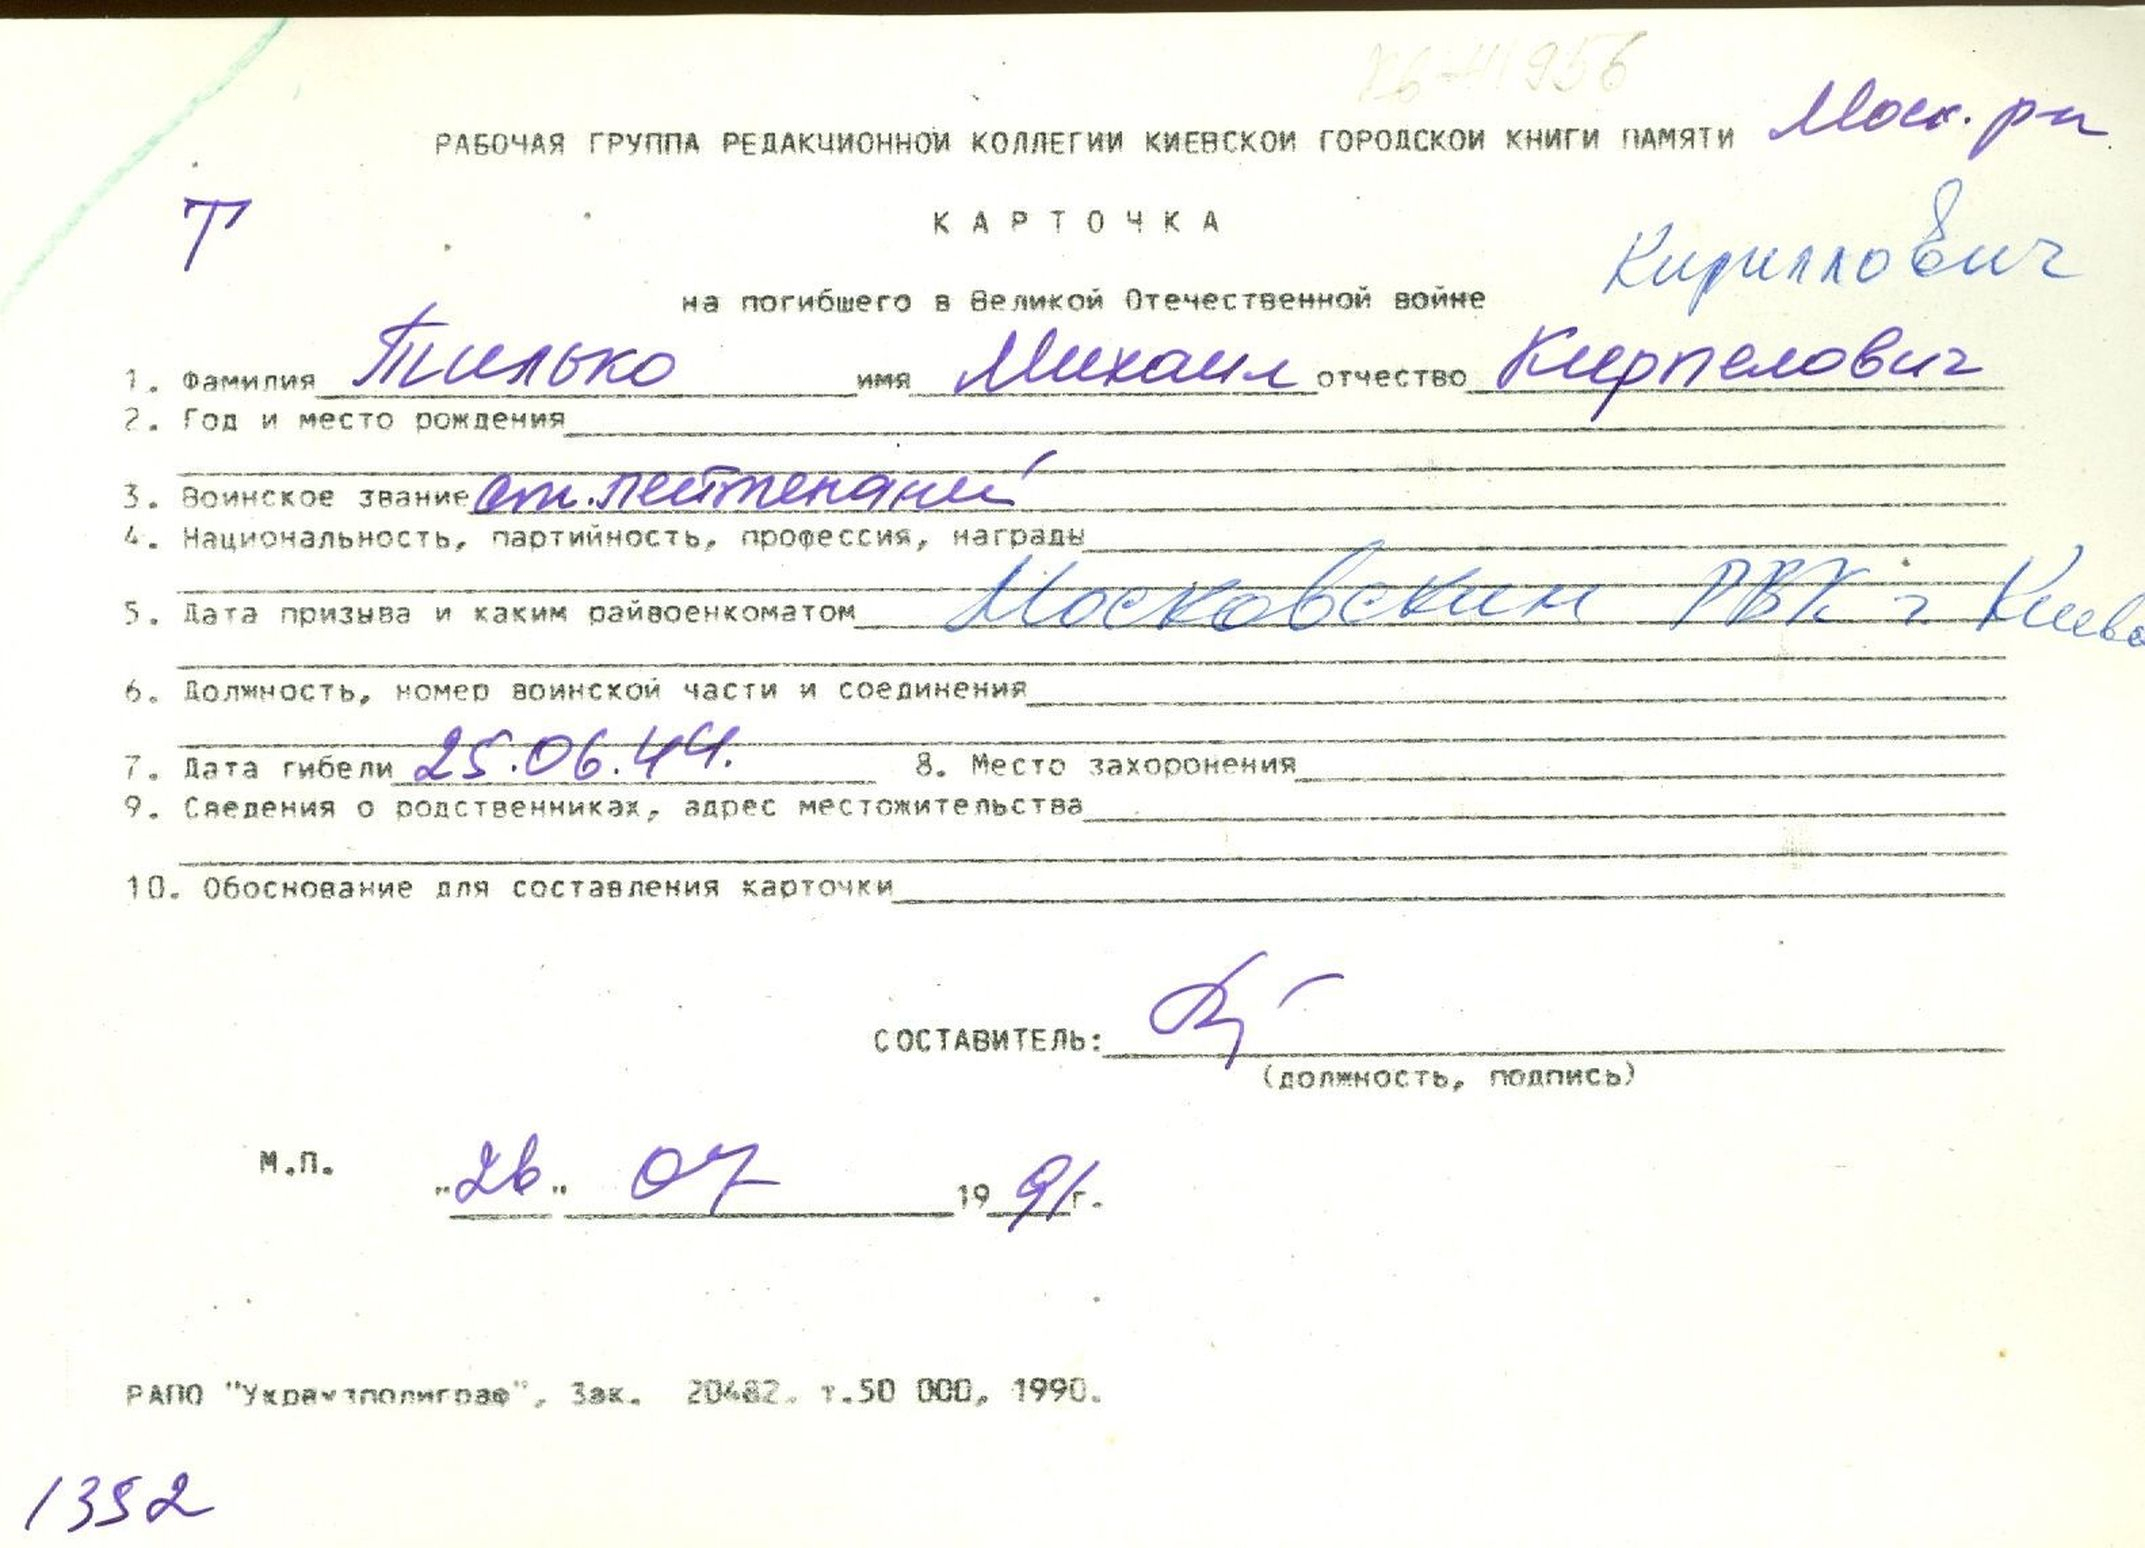 РАБОЧАЯ ГРУППА РЕДАКЦИОННОЙ КОЛЛЕГИИ КИЕВСКОЙ ГОРОДСКОЙ КНИГИ ПАМЯТИ Моск. р-н
Т
КАРТОЧКА
Кириллович
на погибшего в Великой Отечественной войне
1. Фамилия Тилько имя Михаил отчество Кирпелович
2. Год и место рождения
3. Воинское звание ст. лейтенант
4. Национальность, партийность, профессия, награды
5. Дата призыва и каким райвоенкоматом Московским РВК г. Киева
6. Должность, номер воинской части и соединения
7. Дата гибели 25.06.44. 8. Место захоронения
9. Сведения о родственниках, адрес местожительства
10. Обоснование для составления карточки
СОСТАВИТЕЛЬ:
(должность, подпись)
М.П. "26" 07 1991г.
РАПО "Укрвузполиграф", Зак. 20482. т.50 000, 1990.
1352